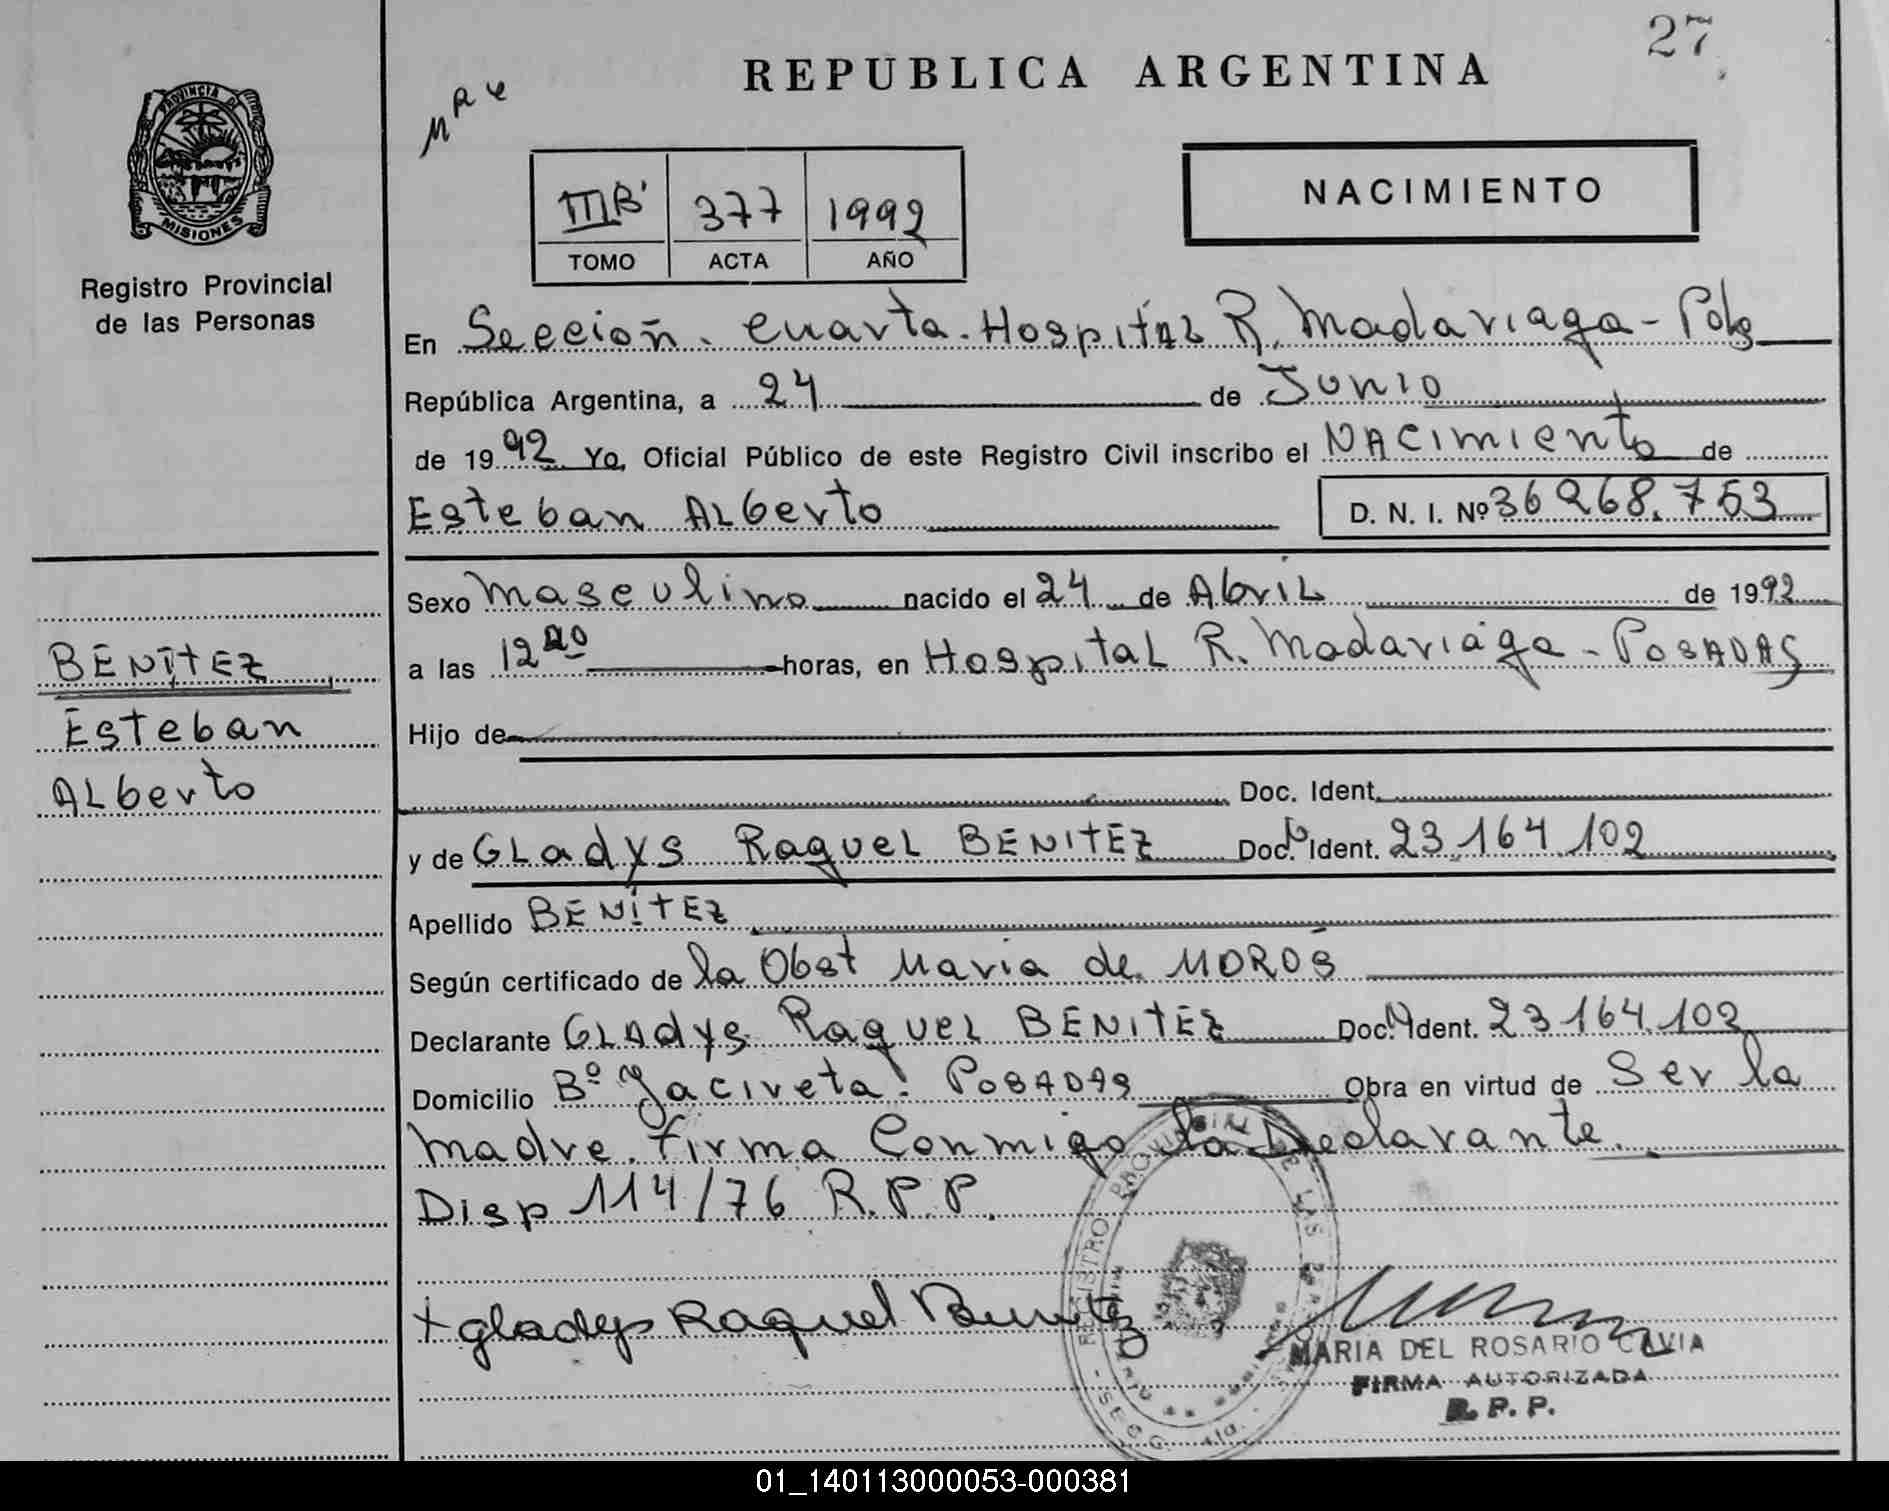 27
REPUBLICA ARGENTINA
PROVINCIA DE
MISIONES
Registro Provincial
de las Personas
IIIB' 377 1992
TOMO ACTA AÑO
NACIMIENTO
En Sección Cuarta. Hospital R. Madariaga - Pdas
República Argentina, a 24 de Junio
de 1992 Yo, Oficial Público de este Registro Civil inscribo el NACimiento de
Esteban ALberto D. N. I. Nº 36268.753
Sexo Masculino nacido el 24 de AbriL de 1992
BENITEZ,
Esteban
ALberto
a las horas, en HospitaL R. Madariaga - POSADAS
Hijo de
Doc. Ident.
y de GLadys RaqueL BENITEZ Doc. N Ident. 23.164.102
Apellido BENITEZ
Según certificado de la Obst Maria de MOROS
Declarante GLAdys RaqueL BENITEZ Doc. N Ident. 23164.102
Domicilio Bº Yaciveta. POSADAS Obra en virtud de Ser la
madre. Firma Conmigo la Declarante.
Disp 114/76 R.P.P.
+ gladys Raquel Benitez
REGISTRO PROVINCIAL DE LAS PERSONAS
MARIA DEL ROSARIO CAVIA
FIRMA AUTORIZADA
R. P. P.
01_140113000053-000381